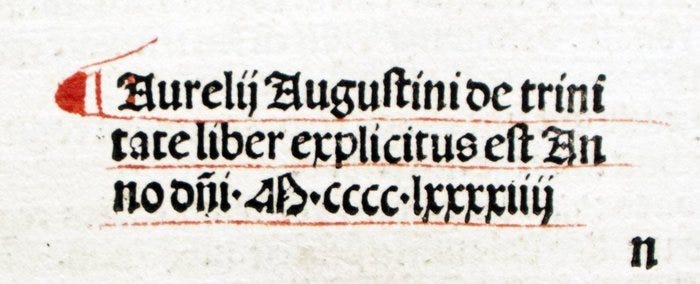 Aurelij Auguſtini de trini
tate liber explicitus eſt An
no dñi· M·cccc·lxxxxiiij
n